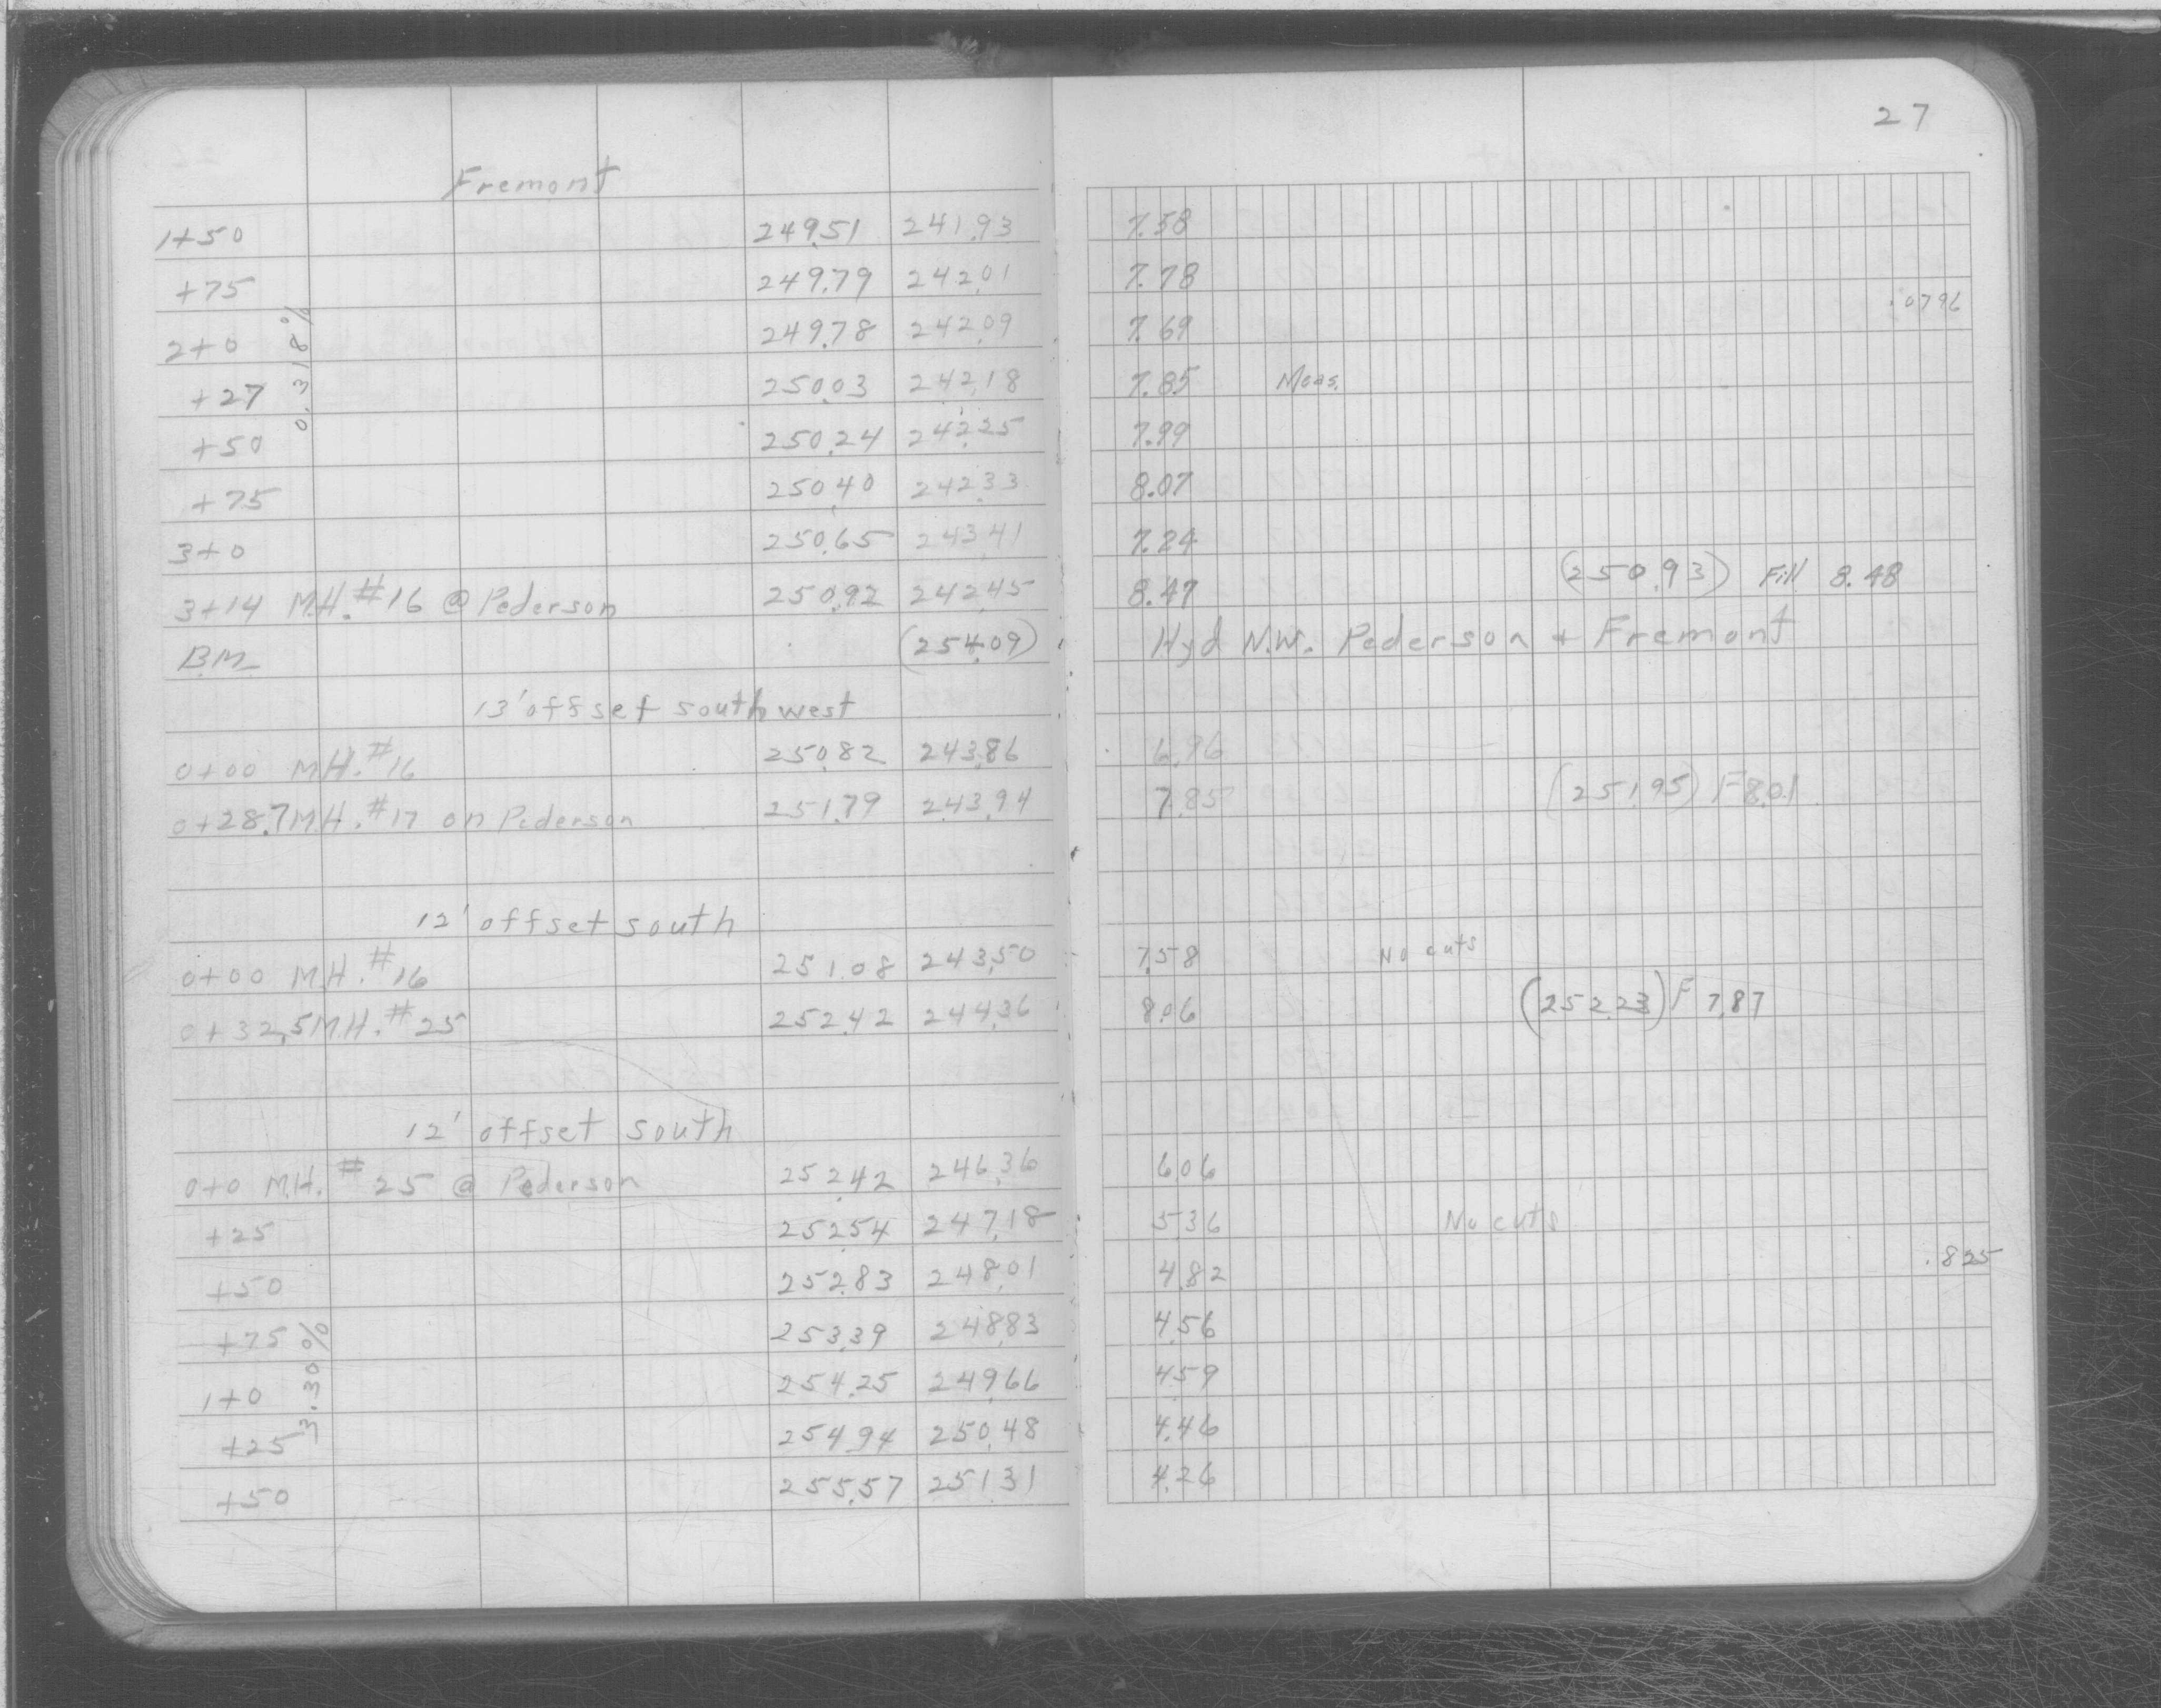 27
Fremont
1+50 249.51 241.93 7.58
+75 249.79 242.01 7.78
.0796
2+0 249.78 242.09 7.69
0.318%
+27 250.03 242.18 7.85 Meas.
+50 250.24 242.25 7.99
+75 250.40 242.33 8.07
3+0 250.65 243.41 7.24
3+14 M.H. #16 @ Pederson 250.92 242.45 8.47 (250.93) Fill 8.48
B.M. (254.09) Hyd N.W. Pederson + Fremont
13' offset southwest
0+00 M.H. #16 250.82 243.86 6.96
0+28.7 M.H. #17 on Pederson 251.79 243.94 7.85 (251.95) F 8.01
12' offset south
0+00 M.H. #16 251.08 243.50 7.58 No cuts
0+32.5 M.H. #25 252.42 244.36 8.06 (252.23) F 7.87
12' offset south
0+0 M.H. #25 @ Pederson 252.42 246.36 6.06
+25 252.54 247.18 5.36 No cuts
+50 252.83 248.01 4.82 .825
+75 253.39 248.83 4.56
3.30%
1+0 254.25 249.66 4.59
+25 254.94 250.48 4.46
+50 255.57 251.31 4.26